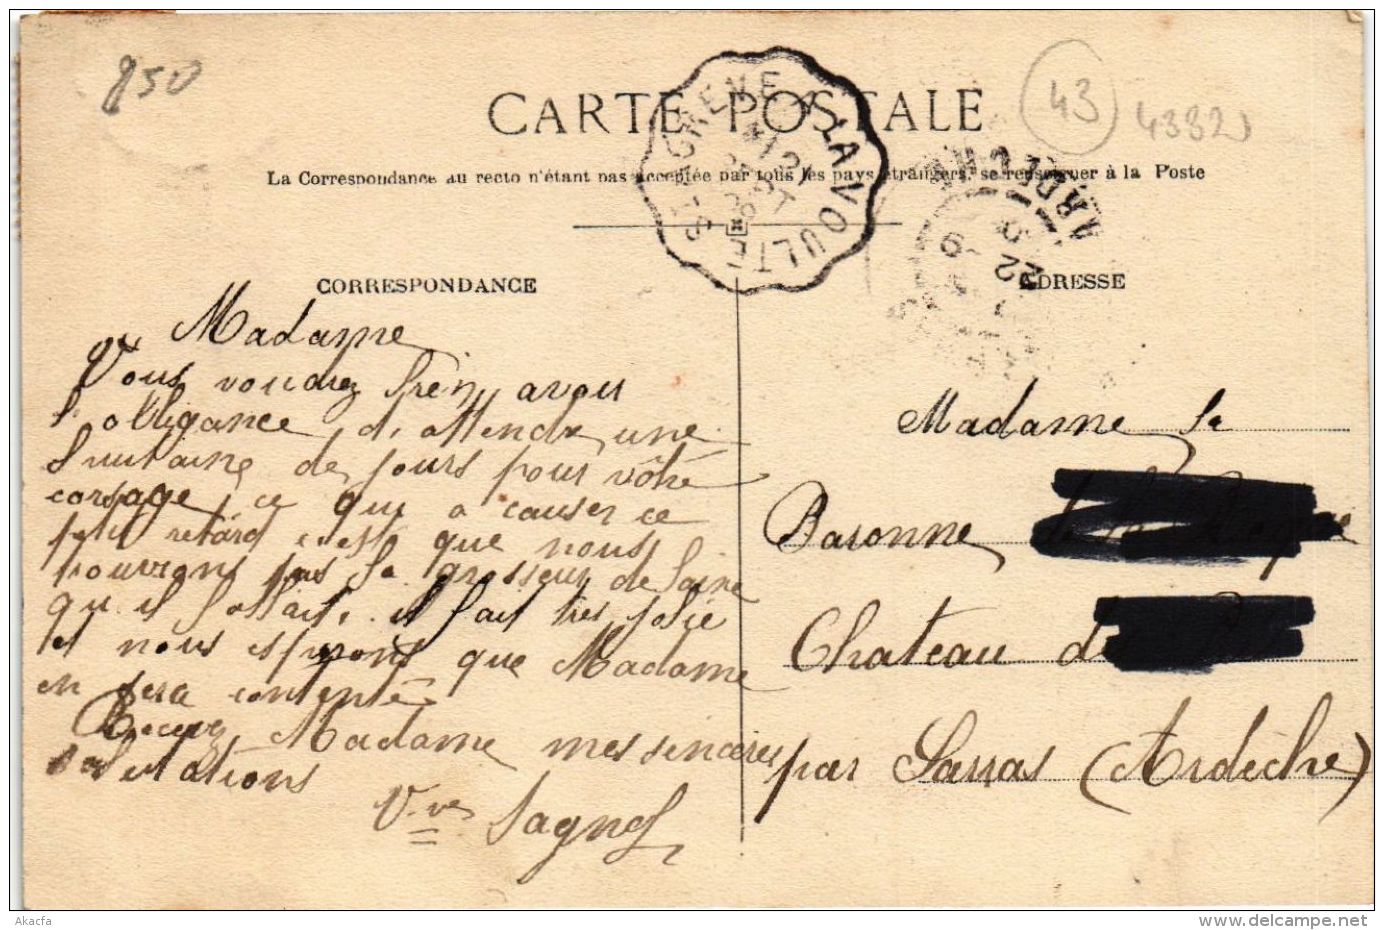 850
CARTE POSTALE
43
43320
La Correspondance au recto n'étant pas acceptée par tous les pays étrangers, se renseigner à la Poste
ST AGREVE A LA VOULTE
ARDECHE
22
CORRESPONDANCE
ADRESSE
Madame
Vous voudrez bien avoir
l'obligance d'attendre une
huitaine de jours pour vôtre
corsage, ce qui a causer ce
petit retard c'est que nous
pouvions pas la grosseur de laine
qu'il fallait, il fait très jolie
et nous esperons que Madame
en sera contente
Recevez Madame mes sincères
salutations
Vve Sagnol
Madame la
Baronne
Chateau de
par Sarras (Ardèche)
Akacfa
www.delcampe.net